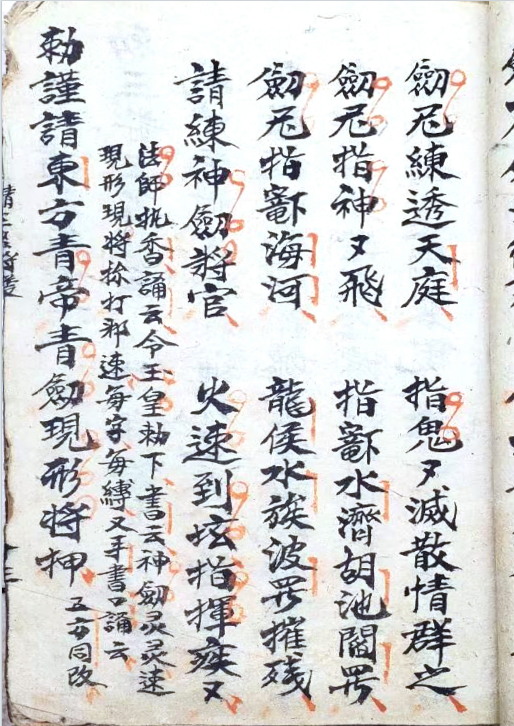 劒練透天庭　指鬼又滅散情群之
劒指神又飛　指水濟胡池
劒指海河　龍侯水族波摧残
請練神劒將官　火速到坛指揮疾又
法師执香誦云令玉皇勅下書云神劒灵灵速
現形現將打邪速每字每縛又手書口誦云
勅謹請東方青帝青劒現形將押　五方同改